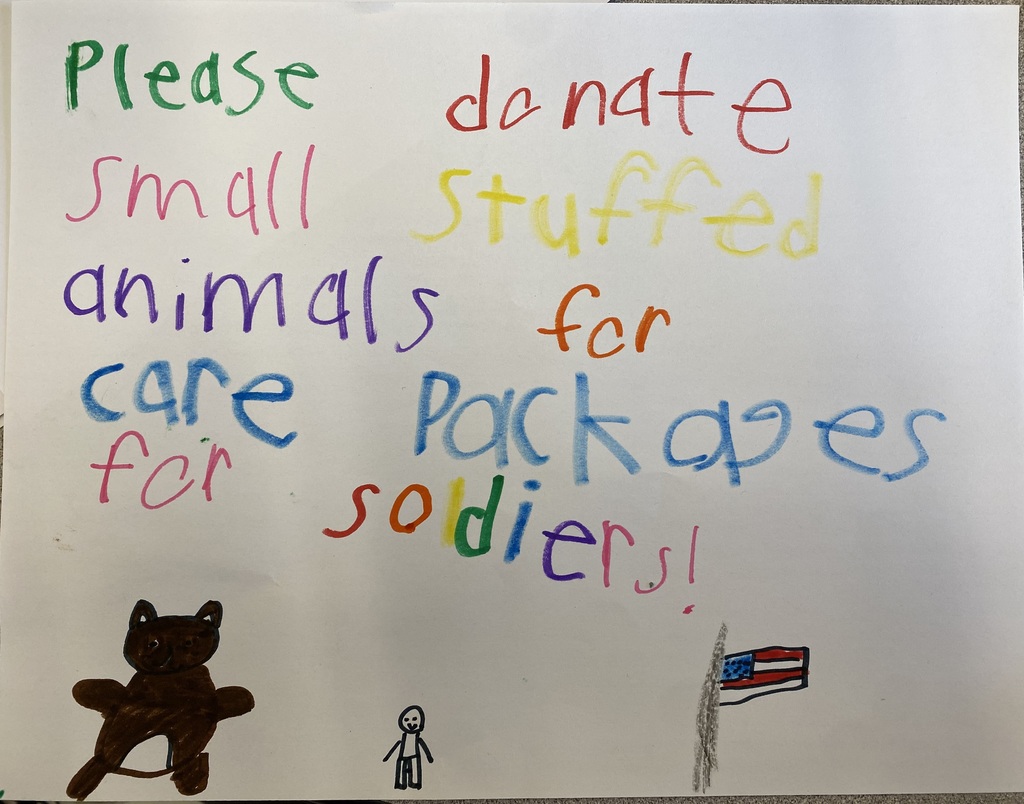 Please donate
small stuffed
animals for
care Packages
for soldiers!